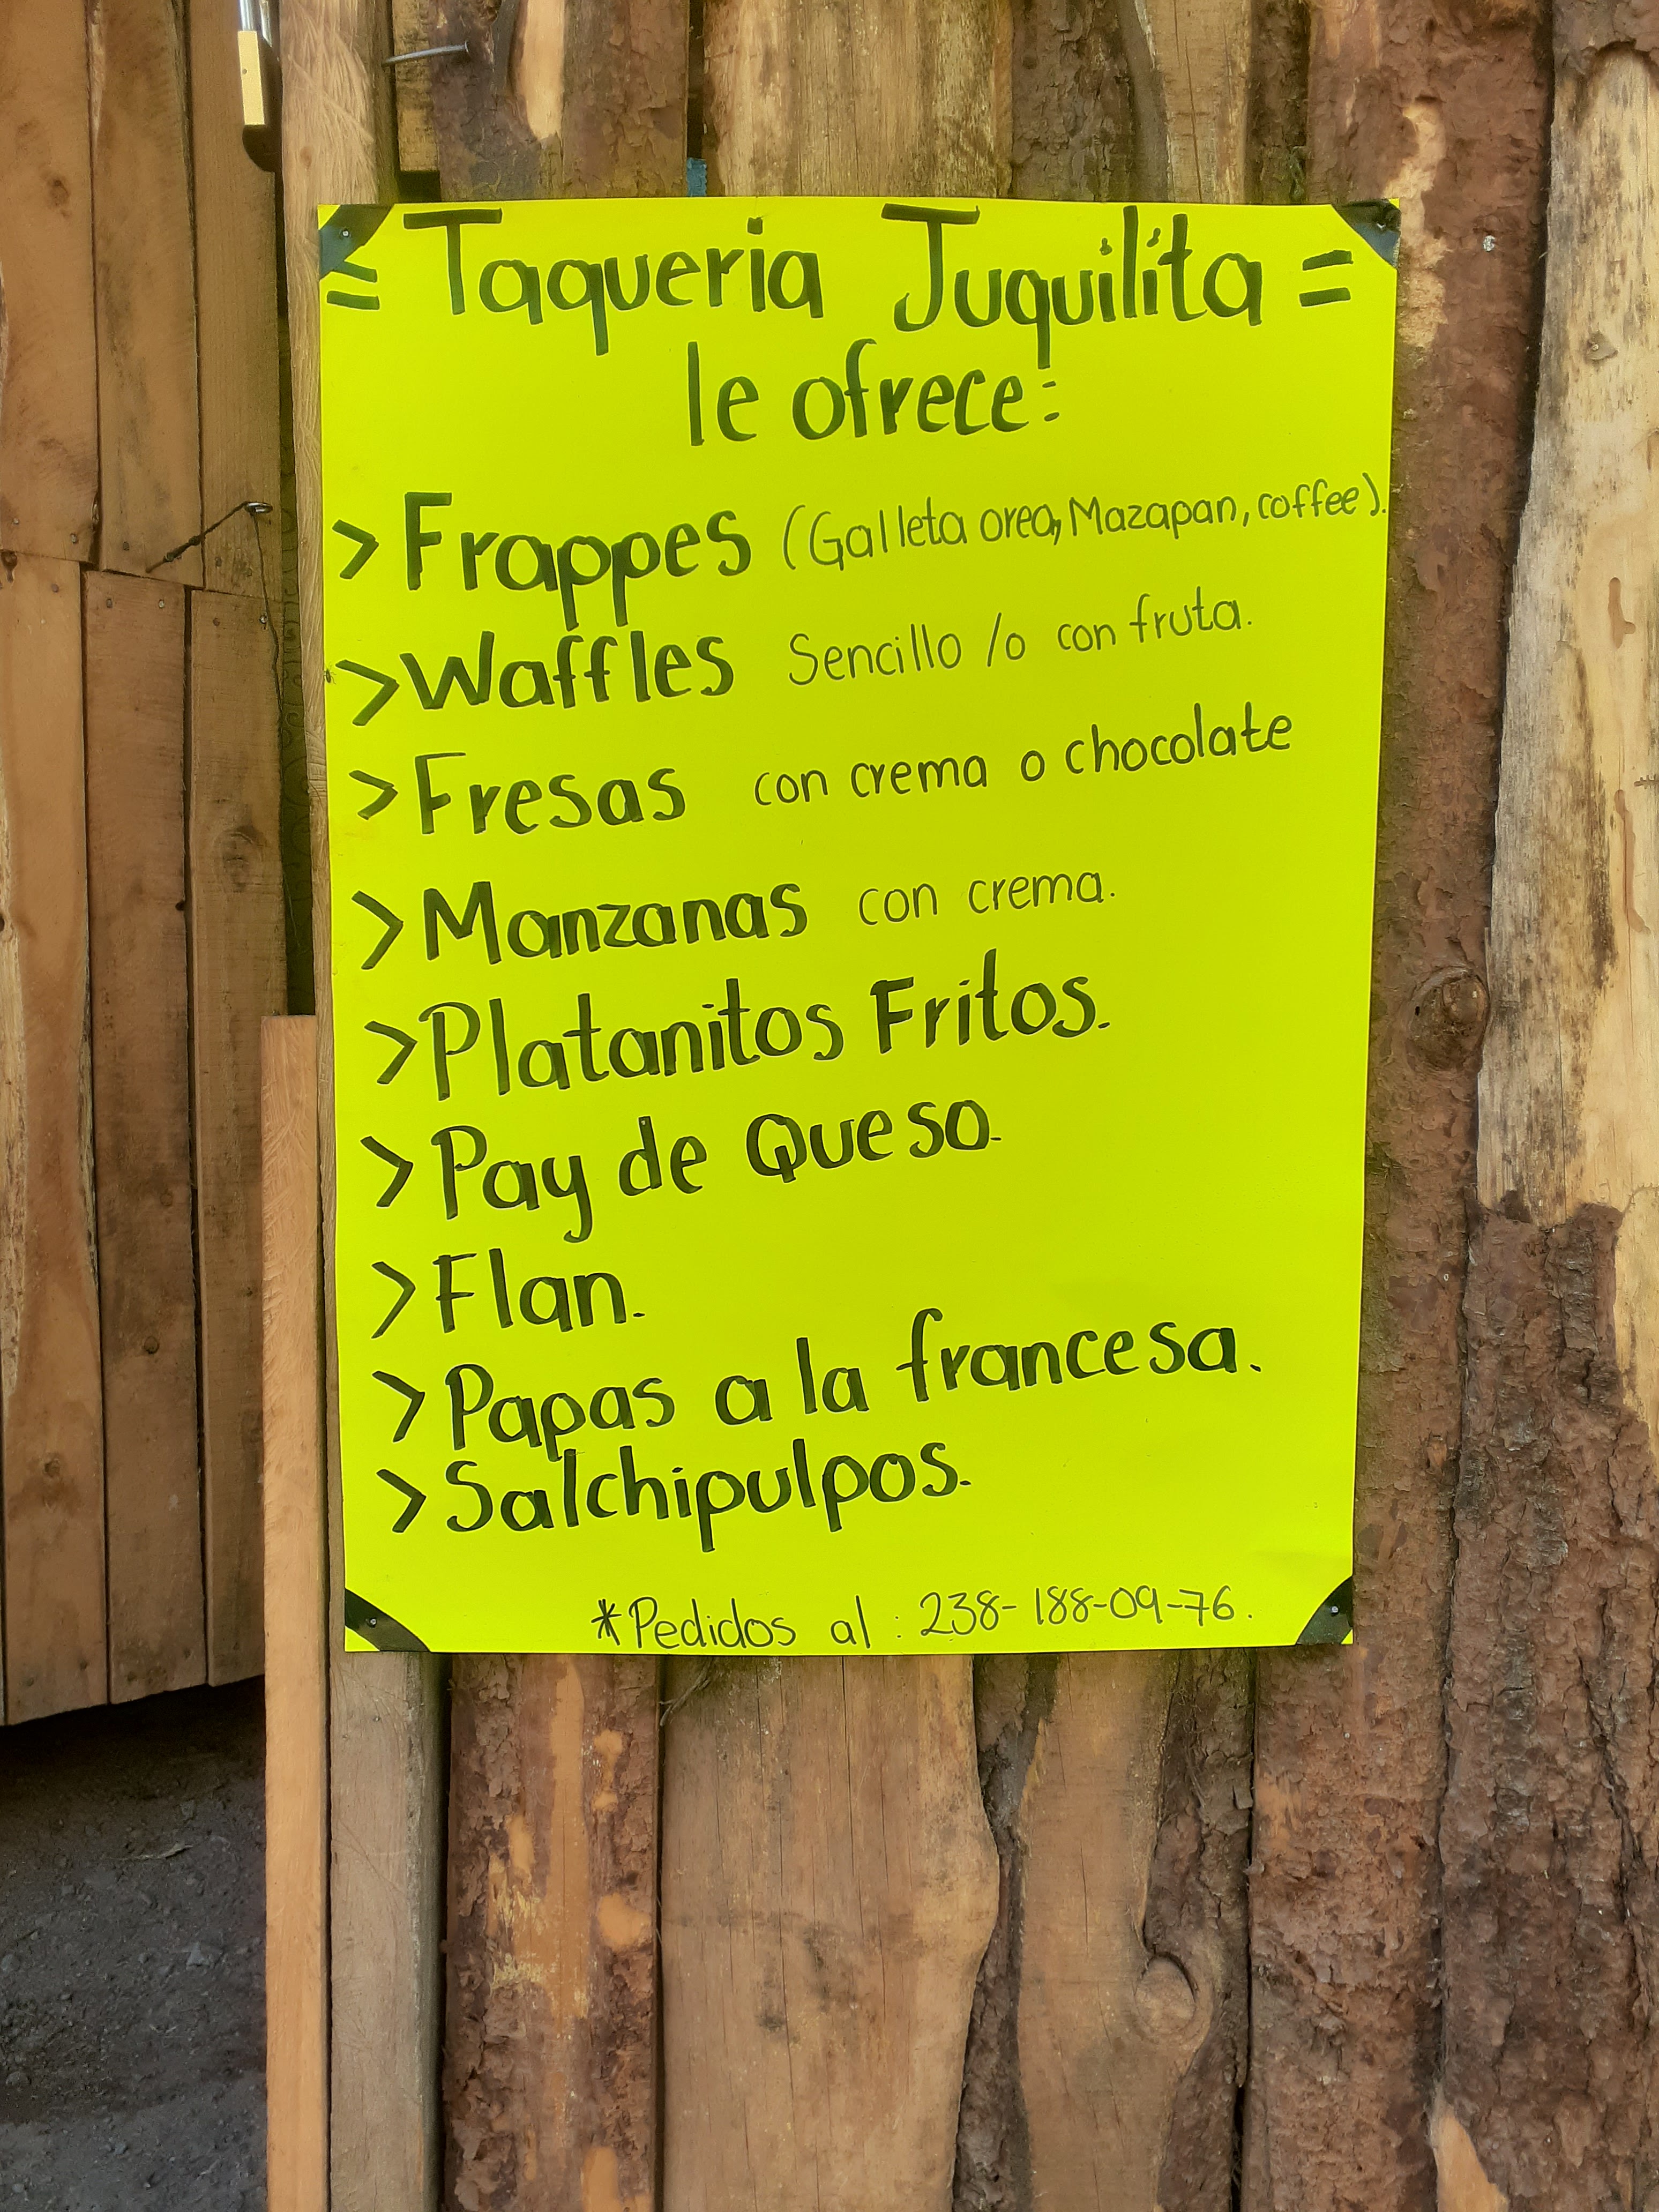 = Taqueria Juquilita =
le ofrece:
> Frappes (Galleta oreo, Mazapan, coffee).
> Waffles Sencillo /o con fruta.
> Fresas con crema o chocolate
> Manzanas con crema.
> Platanitos Fritos.
> Pay de Queso.
> Flan.
> Papas a la francesa.
> Salchipulpos.
*Pedidos al : 238-188-09-76.